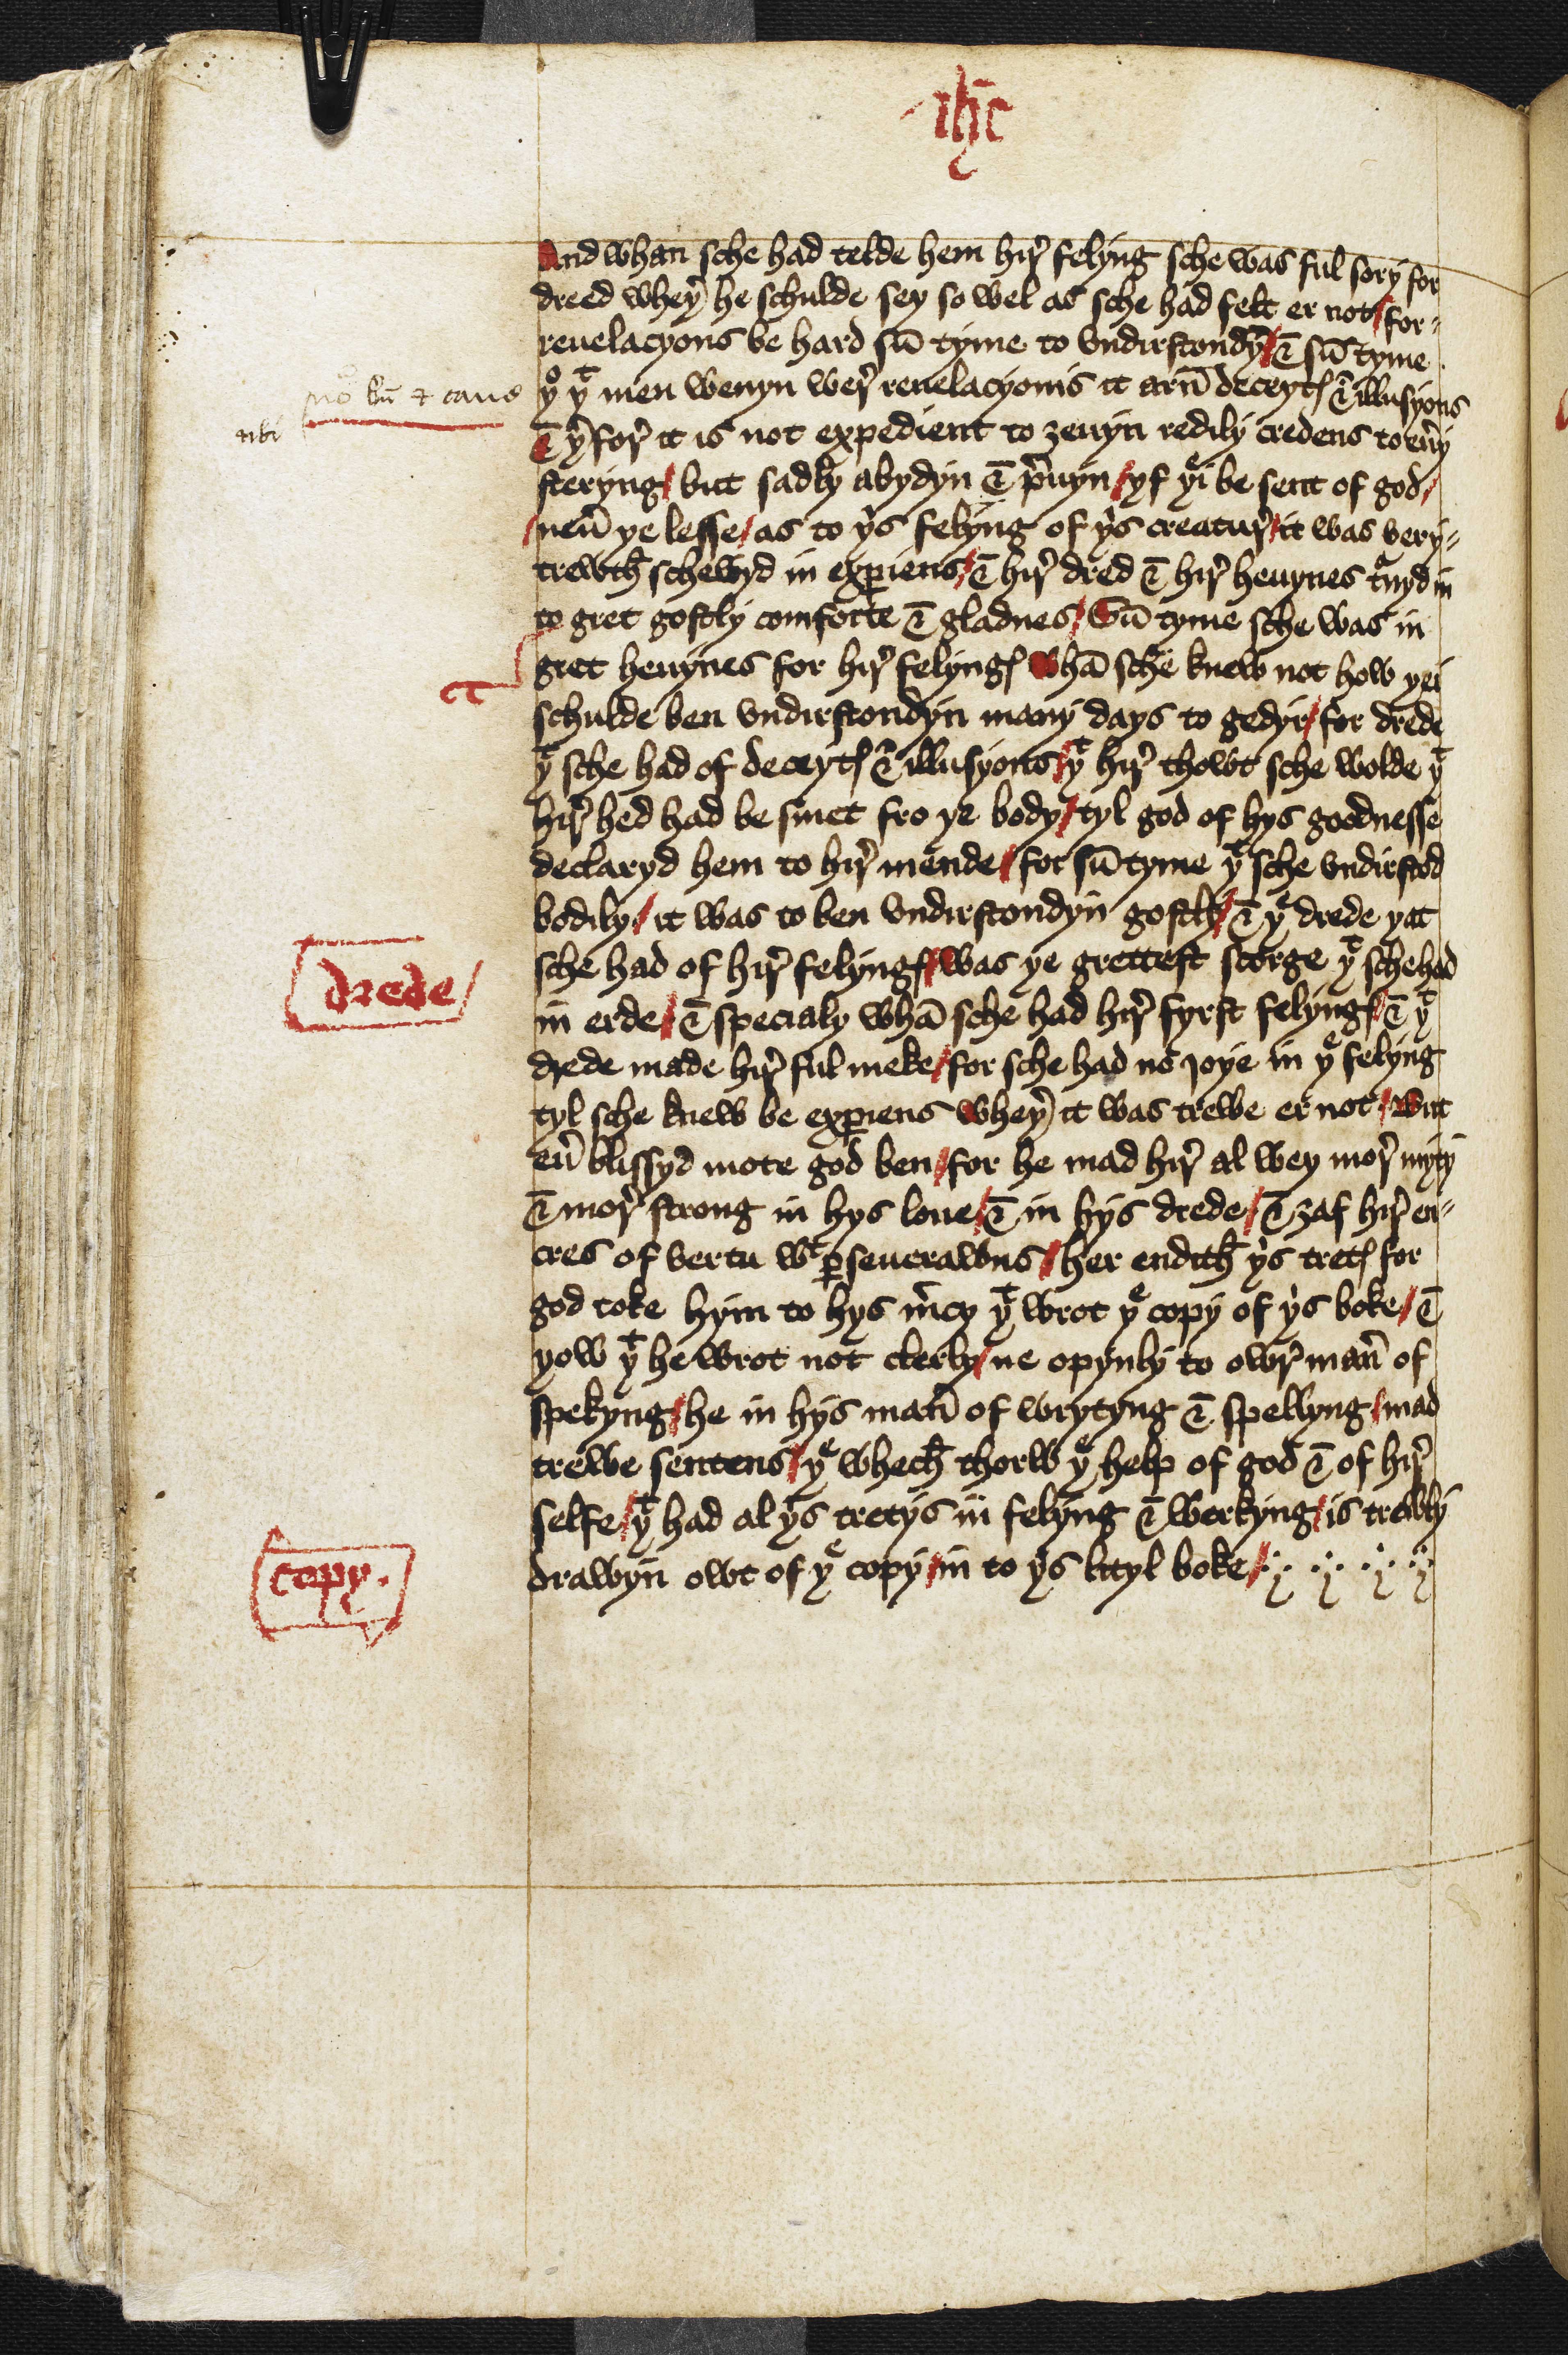 ihc̄
And whan sche had telde hem hir̛ felyng sche was ful sory for
dreed whey̛ he schulde sey so wel as sche had felt er not / for-
reuelacyons be hard sū tyme to vndirstondy̅ / & sū tyme
yͦ yͭ men wenyn wer̛ reuelacyonis it arn̄ deceytꝭ & illusyons
nō bn̄ & caue
nbi
& y̛for̛ it is not expedient to ȝeuyn redily credens to eưy
steryng / but sadly abydyn & p̛uyn / yf yͤi be sent of god /
neư ye lesse / as to yⁱs felyng of yⁱs creatur̛ / it was very-
trewth schewyd in exꝑiens / & hir̛ dred & hir̛ heuynes tᵃnyd in
to gret gostly comforte & gladnes / Sū tyme sche was in
gret heuynes for hir̛ felyngꝭ whā sche knew not how yei
schulde ben vndirstondyn many days to gedyr / for drede
yͭ sche had of deceytꝭ & illusyons / yͭ hir̛ thowt sche wolde yͭ
hir̛ hed had be smet fro ye body / tyl god of hys goodnesse
declaryd hem to hir̛ mende / for sū tyme yͭ sche vndirstod
bodily / it was to ben vndirstondyn gostly / & yͤ drede yat
sche had of hir̛ felyngꝭ / was ye grettest scorge yͭ sche had
drede
in erde / & specialy whā sche had hir̛ fyrst felyngꝭ / & yͭ
drede made hir̛ ful meke / for sche had no joye in yͤ felyng
tyl sche knew be exꝑiens whey̛ it was trewe er not / But
eư blissyd mote god ben / for he mad hir̛ al wey mor̛ myty
& mor̛ strong in hys loue / & in hys drede / & ȝaf hir̛ en-
cres of vertu wͭ ꝑseuerawns / her endith yⁱs tretꝭ for
god toke hym to hys m̛cy yͭ wrot yͤ copy of yⁱs boke / &
yow yͭ he wrot not clerly / ne opynly to owr̛ man̛ of
spekyng / he in hys man̛ of wrytyng & spellyng / mad
trewe sentens / yͤ whech thorw yͤ help of god & of hir̛
selfe / yͭ had al yⁱs tretys in felyng & werkyng / is trewly
copy.
drawyn owt of yͤ copy / in to yⁱs lityl boke /